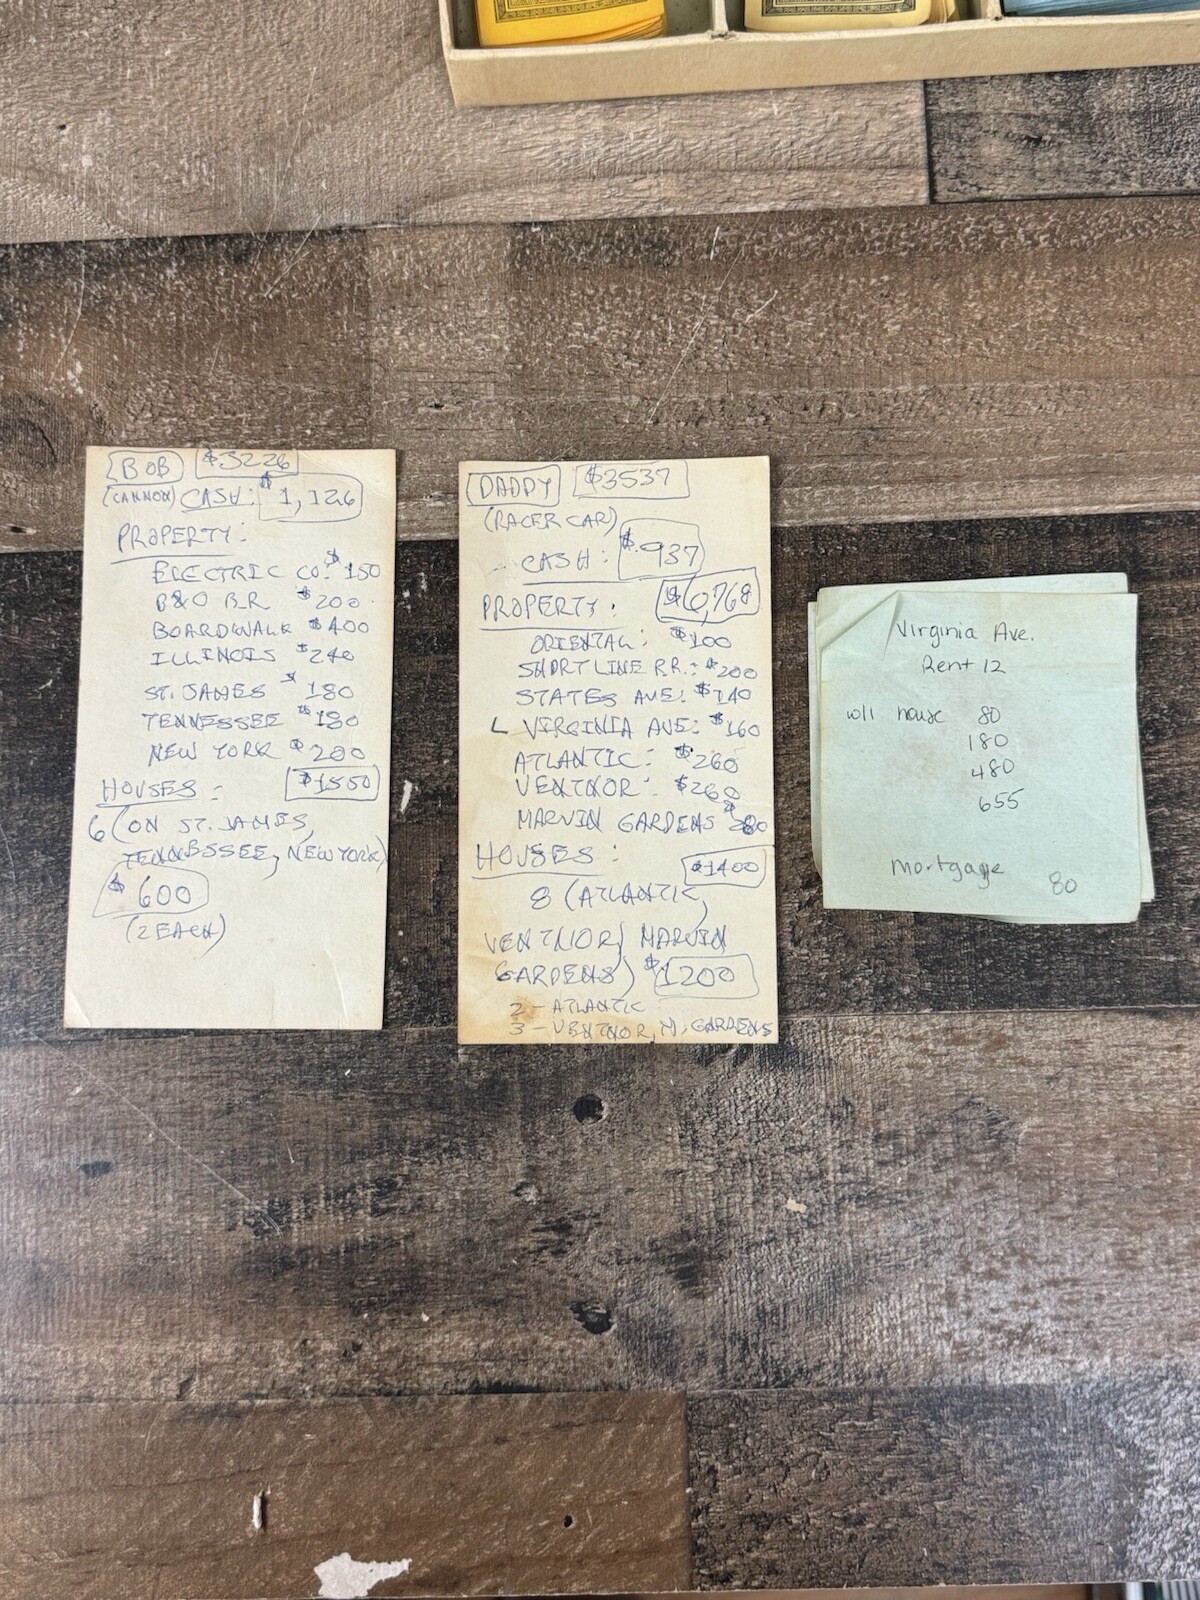 BOB $3226
(CANNON) CASH: $1,126
PROPERTY:
ELECTRIC CO: $150
B&O R.R $200
BOARDWALK $400
ILLINOIS $240
ST. JAMES $180
TENNESSEE $180
NEW YORK $200
HOUSES: $1550
6 (ON ST. JAMES,
TENNESSEE, NEW YORK)
$600
(2 EACH)
DADDY $3537
(RACER CAR)
CASH: $937
$6,768
PROPERTY:
ORIENTAL: $100
SHORT LINE R.R.: $200
STATES AVE: $140
VIRGINIA AVE: $160
ATLANTIC: $260
VENTNOR: $260
MARVIN GARDENS $280
HOUSES: $1400
8 (ATLANTIC,
VENTNOR, MARVIN
GARDENS) $1200
2 - ATLANTIC
3 - VENTNOR, M. GARDENS
Virginia Ave.
Rent 12
w/1 house 80
180
480
655
Mortgage 80